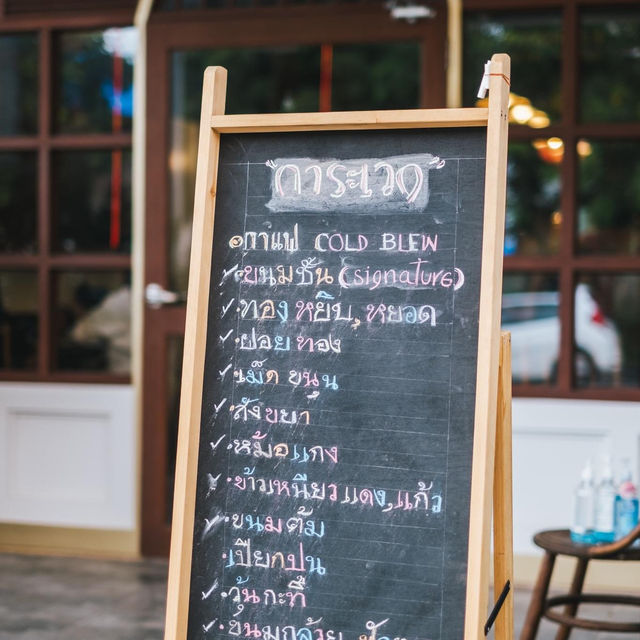 "การะเวก"
กาแฟ COLD BLEW
✓・ขนมชั้น (signature)
✓・ทอง หยิบ, หยอด
✓・ฝอย ทอง
✓・เม็ด ขนุน
✓・สังขยา
✓・หม้อแกง
✓・ข้าวเหนียวแดง,แก้ว
✓・ขนมต้ม
เปียกปูน
✓・วุ้นกะทิ
✓・ขนมกล้วย